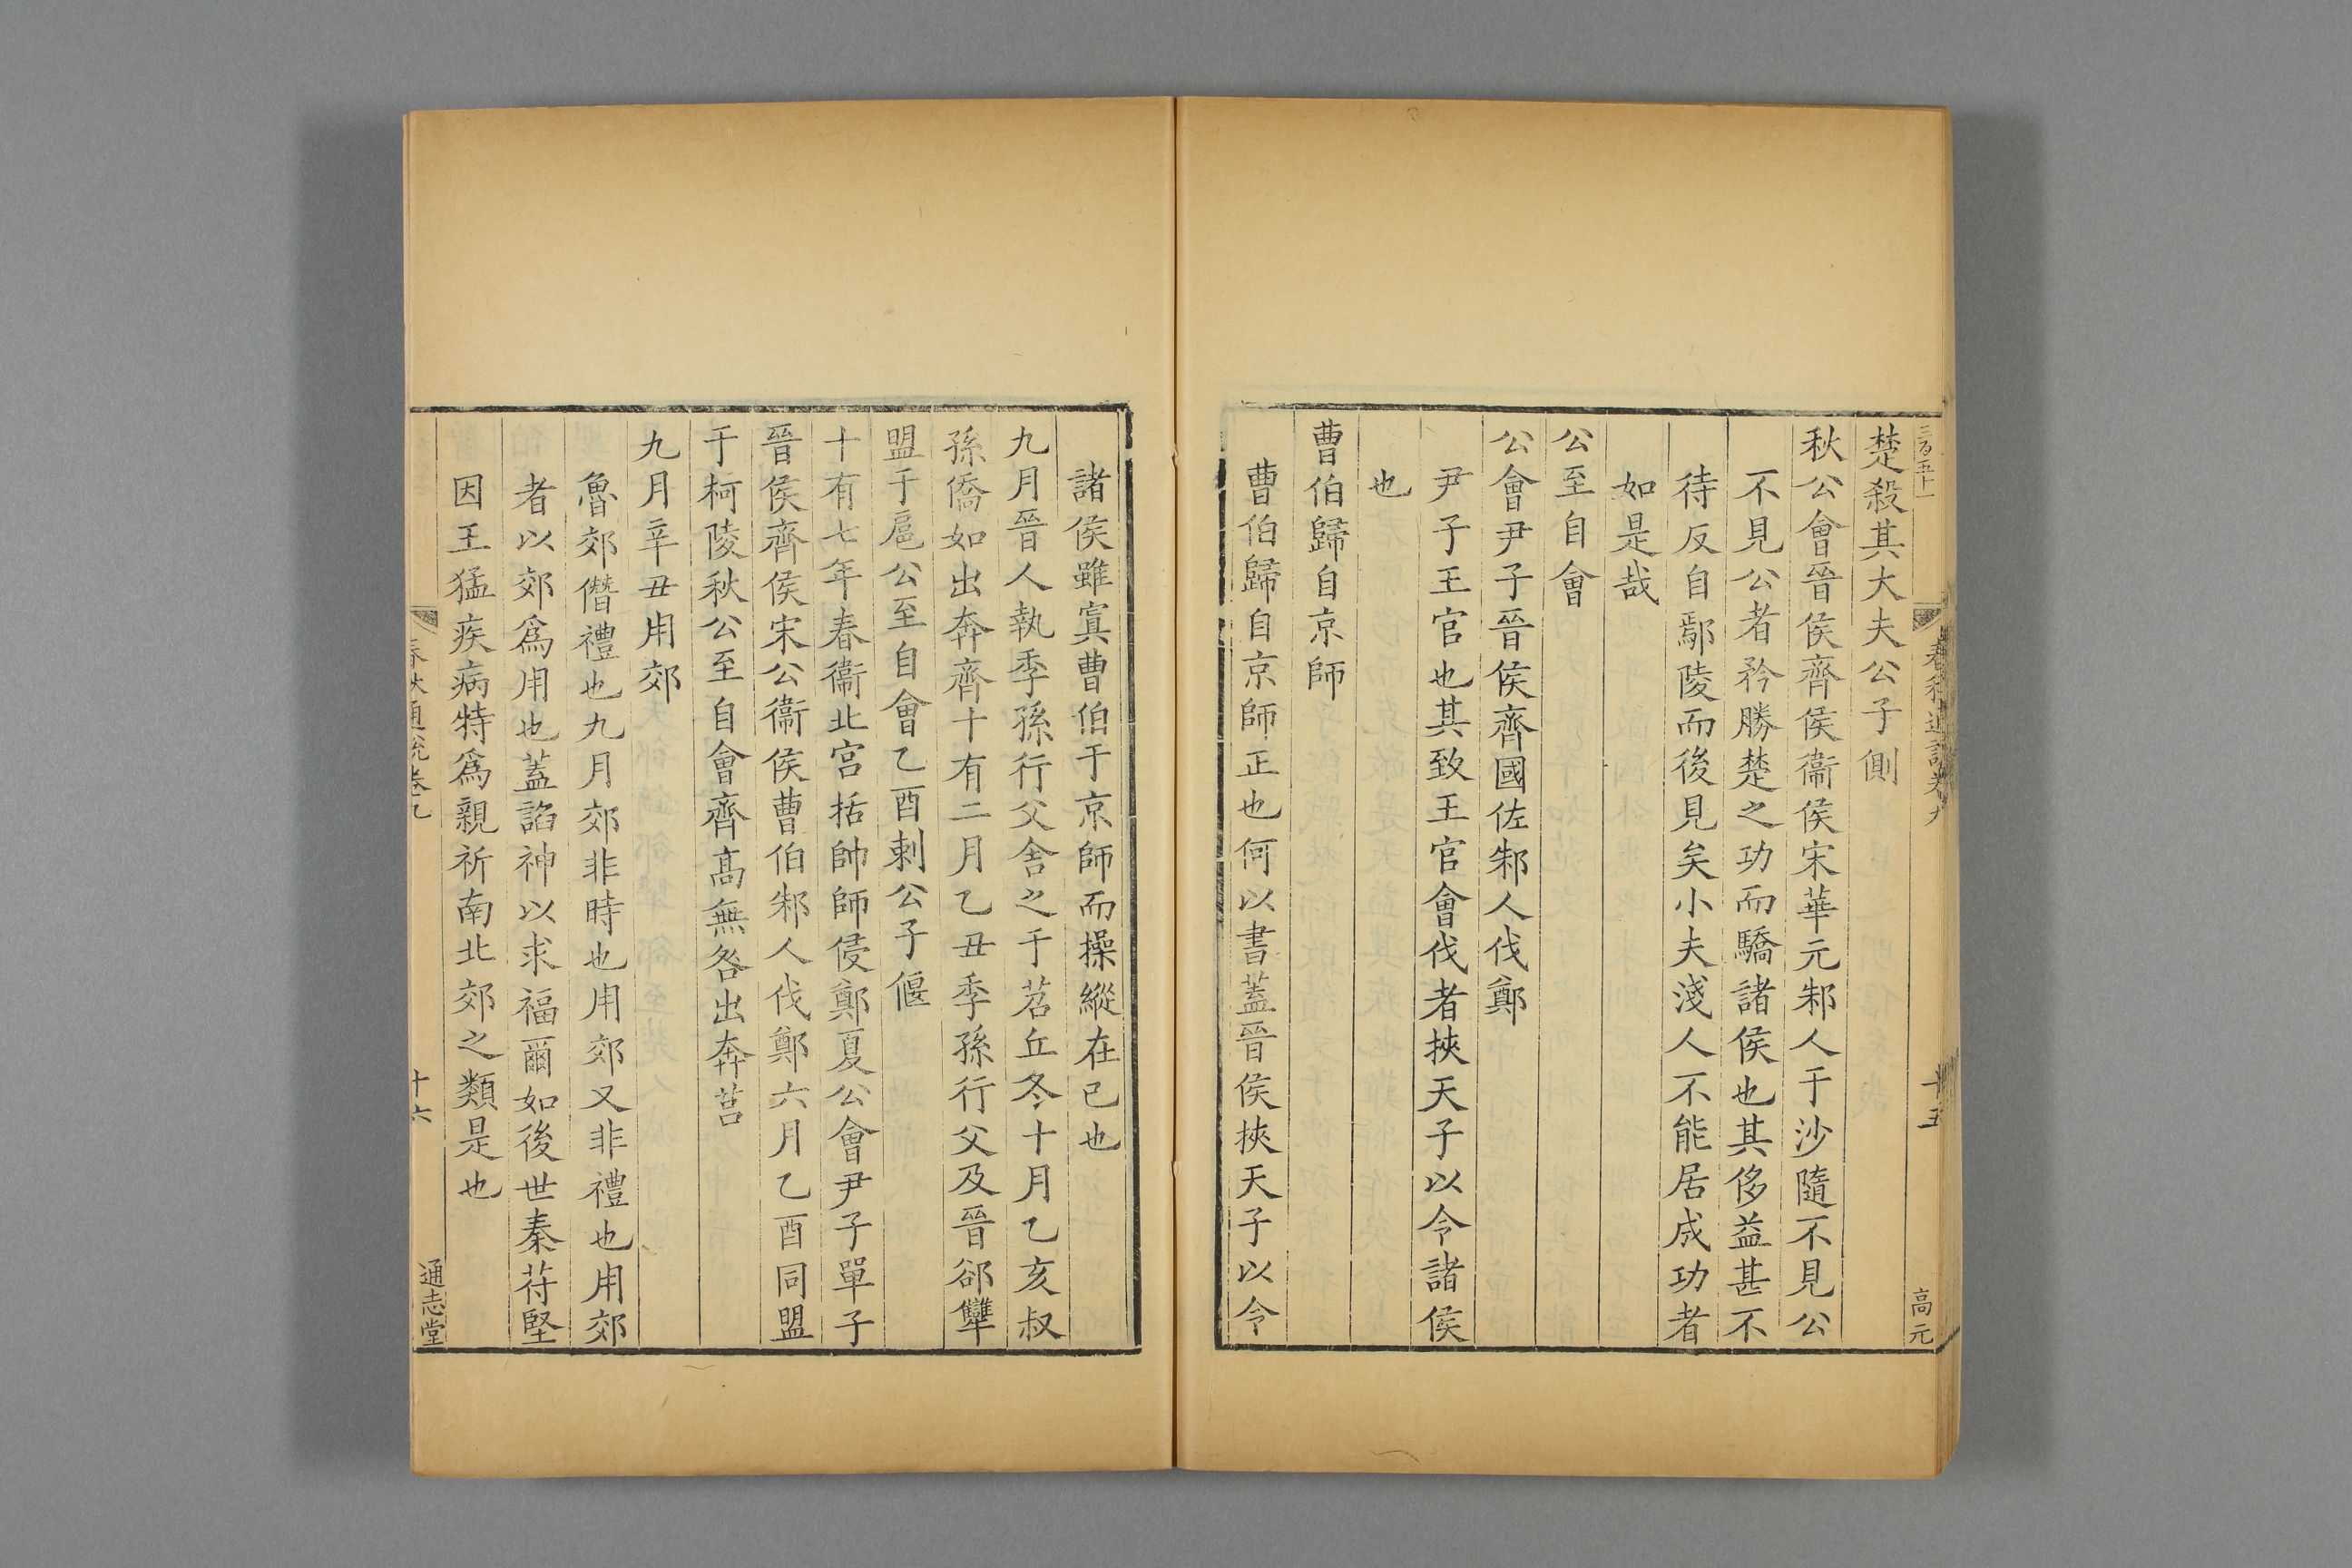 三百五十一
春秋通説卷九
十五
高元
楚殺其大夫公子側
秋公會晉侯齊侯衞侯宋華元邾人于沙隨不見公
不見公者矜勝楚之功而驕諸侯也其侈益甚不
待反自鄢陵而後見矣小夫淺人不能居成功者
如是哉
公至自會
公會尹子晉侯齊國佐邾人伐鄭
尹子王官也其致王官會伐者挾天子以令諸侯
也
曹伯歸自京師
曹伯歸自京師正也何以書蓋晉侯挾天子以令
諸侯雖寘曹伯于京師而操縱在已也
九月晉人執季孫行父舎之于苕丘冬十月乙亥叔
孫僑如出奔齊十有二月乙丑季孫行父及晉郤犫
盟于扈公至自會乙酉刺公子偃
十有七年春衞北宮括帥師侵鄭夏公會尹子單子
晉侯齊侯宋公衞侯曹伯邾人伐鄭六月乙酉同盟
于柯陵秋公至自會齊髙無咎出奔莒
九月辛丑用郊
魯郊僭禮也九月郊非時也用郊又非禮也用郊
者以郊爲用也蓋諂神以求福爾如後世秦苻堅
因王猛疾病特爲親祈南北郊之類是也
春秋通説卷九
十六
通志堂